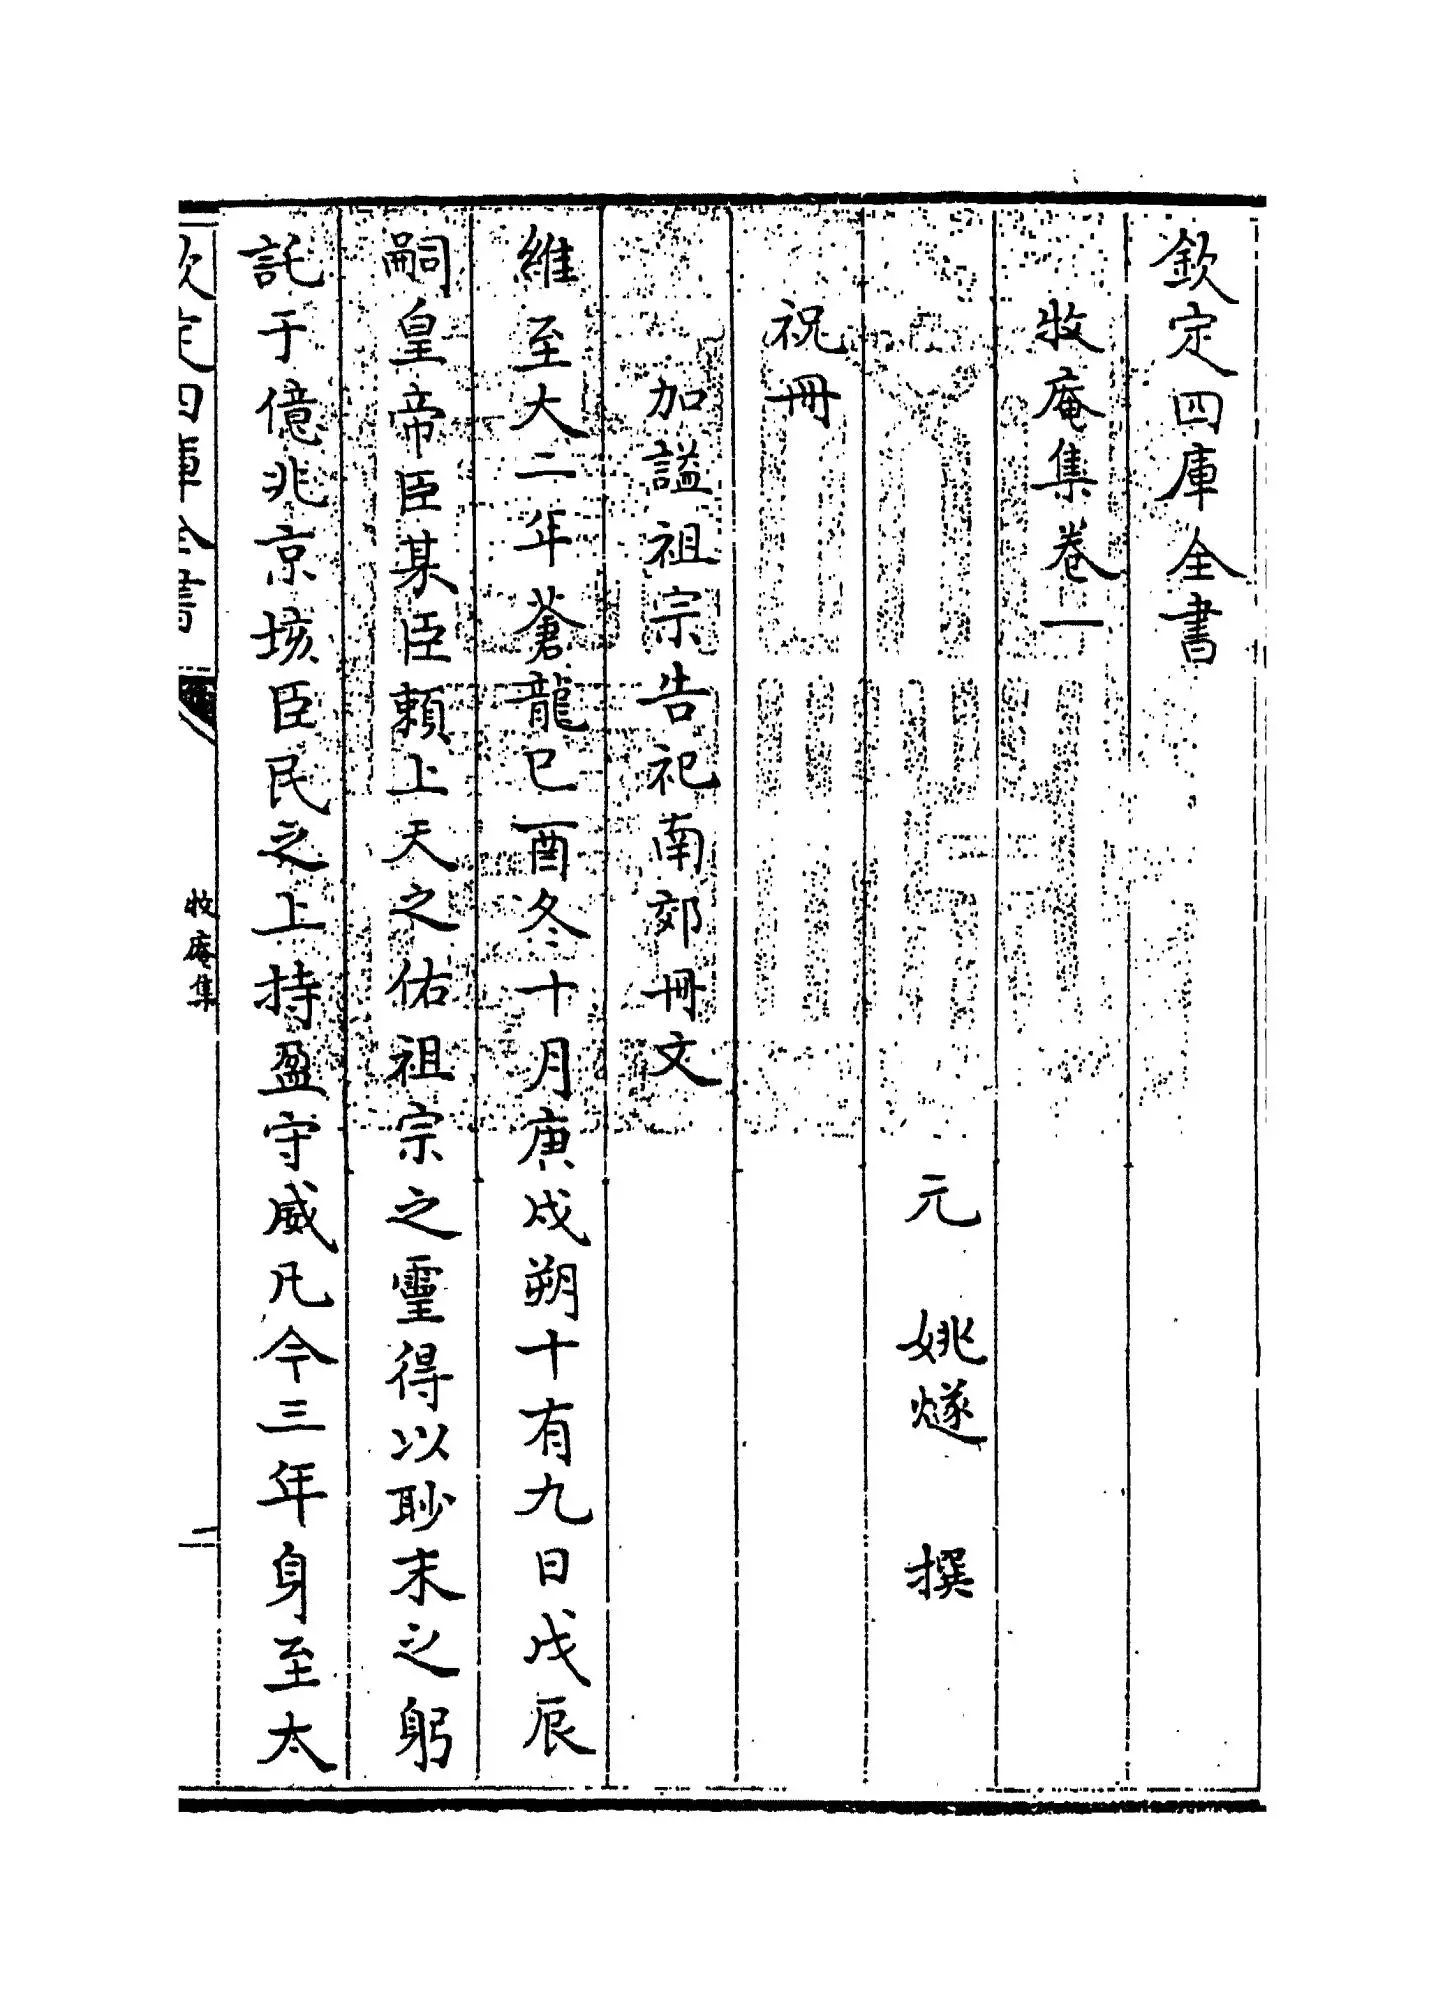 欽定四庫全書
牧庵集卷一
元 姚燧 撰
祝冊
加謚祖宗告祀南郊冊文
維至大二年蒼龍已酉冬十月庚戌朔十有九日戊辰
嗣皇帝臣某臣頼上天之佑祖宗之靈得以眇末之躬
託于億兆京垓臣民之上持盈守威凡今三年身至太
欽定四庫全書
牧庵集